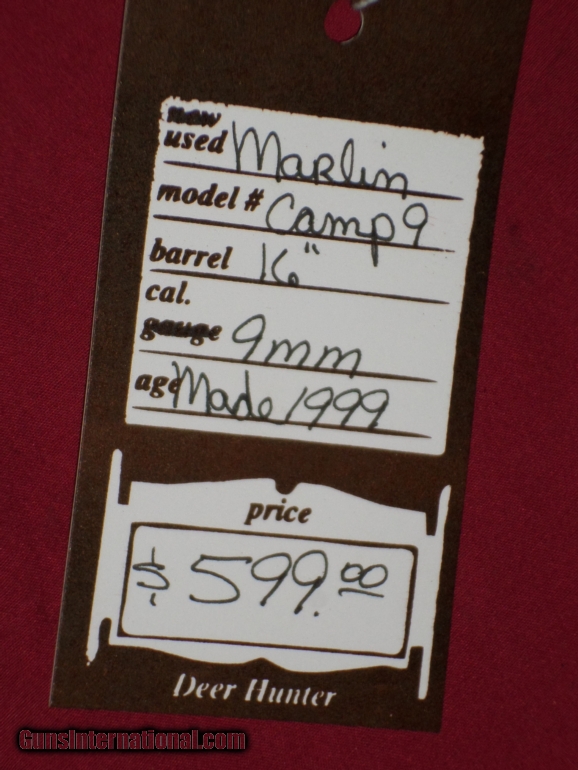 new
used Marlin
model # Camp 9
barrel 16"
cal.
gauge 9mm
age Made 1999
price
$599.00
Deer Hunter
GunsInternational.com